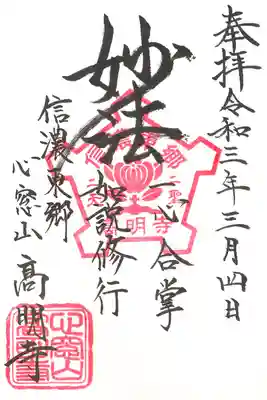 奉拝 令和三年三月四日
妙法
一心合掌
如説修行
信濃東郷
心窓山 高明寺